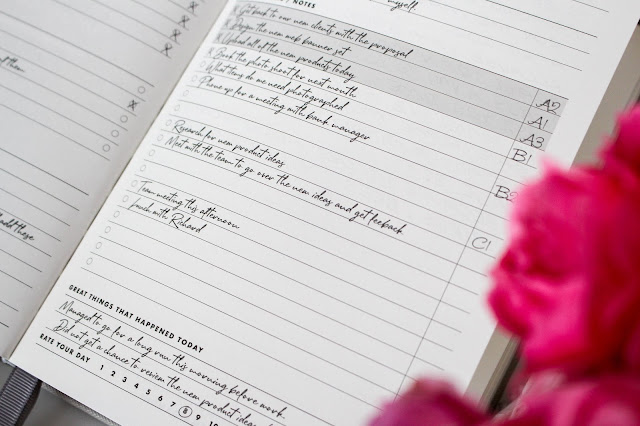 of them
add these
myself.
NOTES
Get back to our new clients with the proposal
the new web banner set
Upload all of the new products today
Book the photo shoot for next month
What items do we need photographed
Phone up for a meeting with bank manager
A2
A1
A3
B1
Research for new product ideas
Meet with the team to go over the new ideas and get feeback
B2
Team meeting this afternoon
Lunch with Richard
C1
GREAT THINGS THAT HAPPENED TODAY
Managed to go for a long run this morning before work.
Did not get a chance to review the new product ideas
RATE YOUR DAY 1 2 3 4 5 6 7 8 9 10